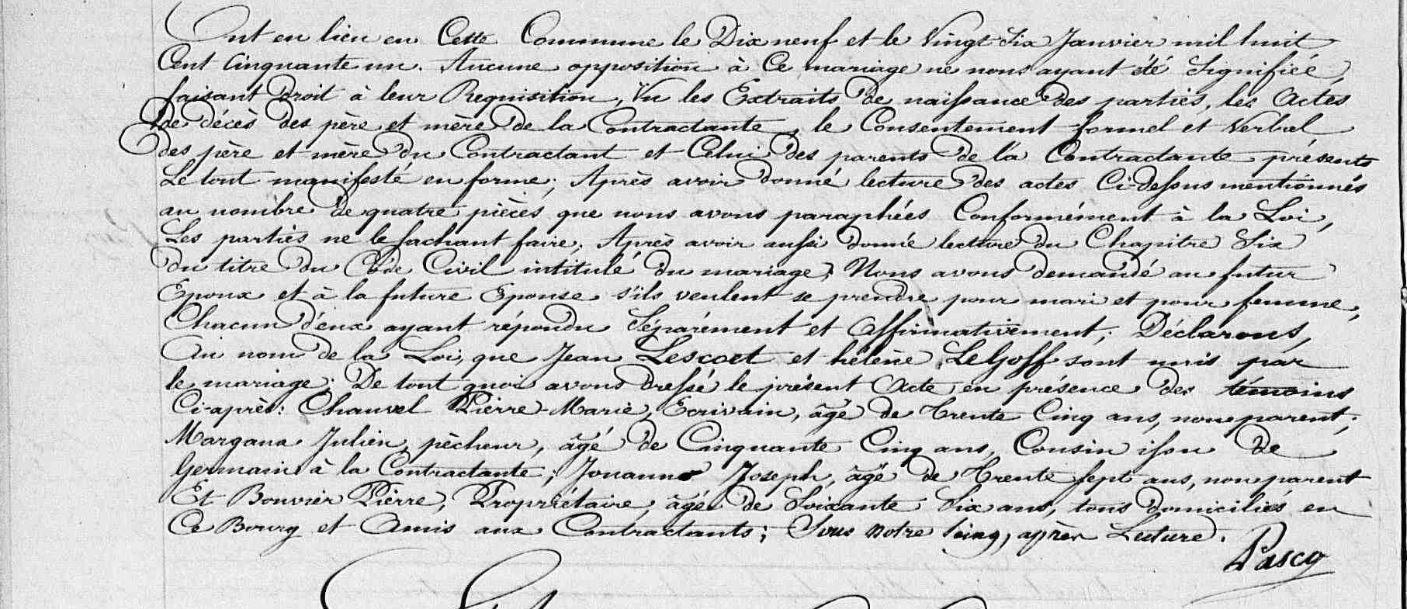 Ont eu lieu en Cette Commune le Dix neuf et le Vingt Six Janvier mil huit
Cent Cinquante un. Aucune opposition à Ce mariage ne nous ayant été Signifiée,
faisant droit à leur Requisition, Vu les Extraits de naissance des parties, les Actes
de décès des père et mère de la Contractante, le Consentement formel et Verbal
des père et mère du Contractant et Celui des parents de la Contractante présents
Le tout manifesté en forme; Après avoir donné lecture des actes Ci-dessus mentionnés
au nombre de quatre pièces que nous avons paraphées Conformément à la Loi,
Les parties ne le sachant faire; Après avoir aussi donné lecture du Chapitre Six
du titre du Code Civil intitulé du mariage; Nous avons demandé au futur
Epoux et à la future Epouse s'ils veulent se prendre pour mari et pour femme,
Chacun d'eux ayant répondu Séparément et Affirmativement; Déclarons,
Au nom de la Loi, que Jean Lescoet et hélène Le Goff sont unis par
le mariage; De tout quoi avons dressé le présent Acte en présence des témoins
Ci-après: Chauvel Pierre-Marie, Ecrivain, âgé de Trente Cinq ans, non parent;
Margana Julien, pècheur, âgé de Cinquante Cinq ans, Cousin issu de
Germain à la Contractante; Jouanno Joseph, âgé de Trente Sept ans, non parent
Et Bouvier Pierre, Propriétaire, âgé de Soixante Six ans, tous domiciliés en
Ce Bourg et Amis aux Contractants; Sous notre seing, après Lecture.
Pasco